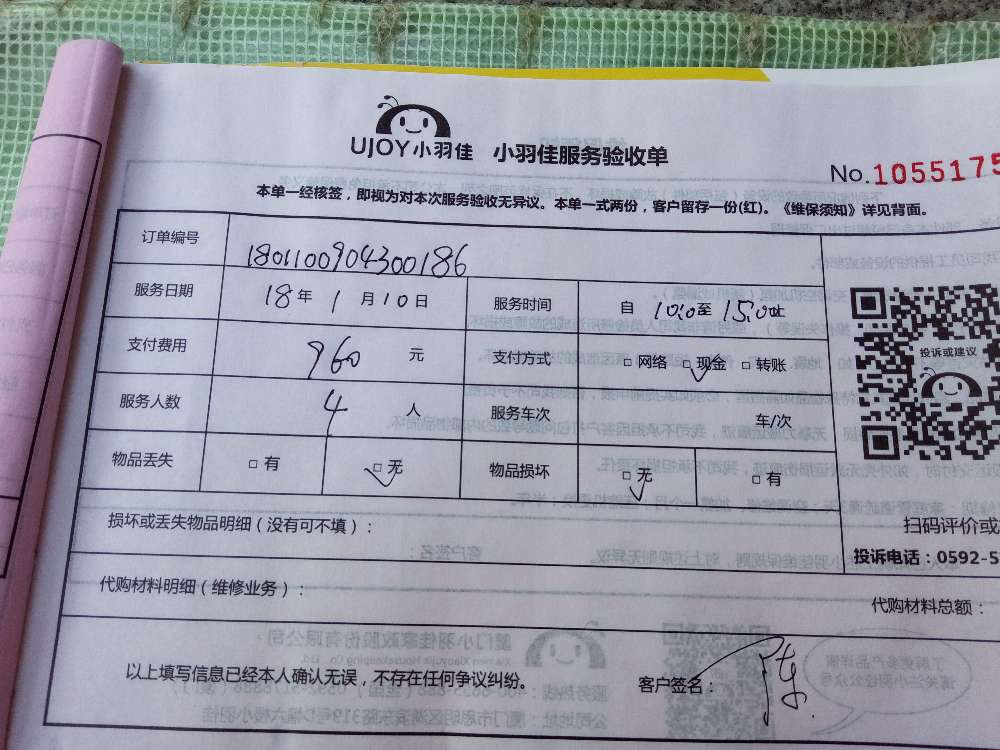 UJOY小羽佳 小羽佳服务验收单
No.1055175
本单一经核签，即视为对本次服务验收无异议。本单一式两份，客户留存一份(红)。《维保须知》详见背面。
订单编号 1801100904300186
服务日期 18年1月10日 服务时间 自10:0至15:0
支付费用 960元 支付方式 □网络 □现金 □转账
投诉或建议
服务人数 4人 服务车次 车/次
物品丢失 □有 □无 物品损坏 □无 □有
损坏或丢失物品明细（没有可不填）：
扫码评价或
投诉电话：0592-5
代购材料明细（维修业务）：
代购材料总额：
以上填写信息已经本人确认无误，不存在任何争议纠纷。 客户签名：